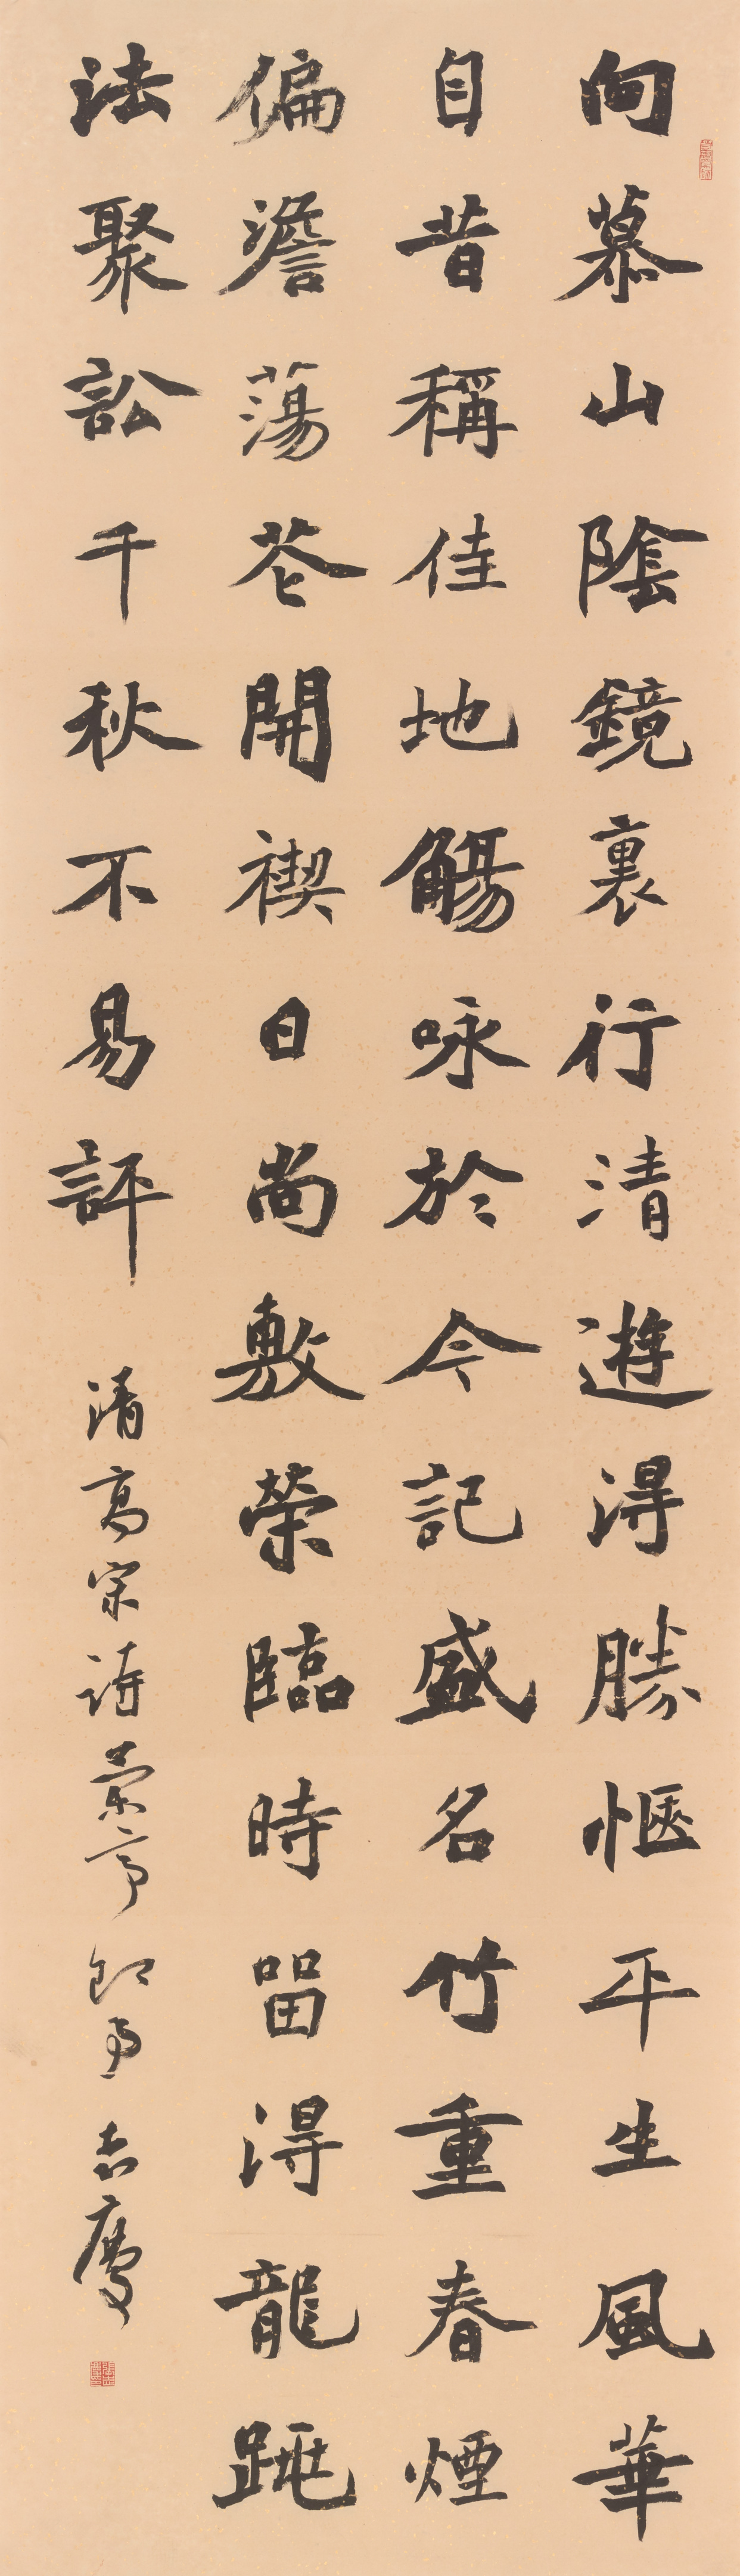 向慕山陰鏡裏行清遊得勝愜平生風華
自昔稱佳地觴咏於今記盛名竹重春煙
偏澹蕩花開禊日尚敷榮臨時留得龍跳
法聚訟千秋不易評 清高宗詩蘭亭即事 志慶